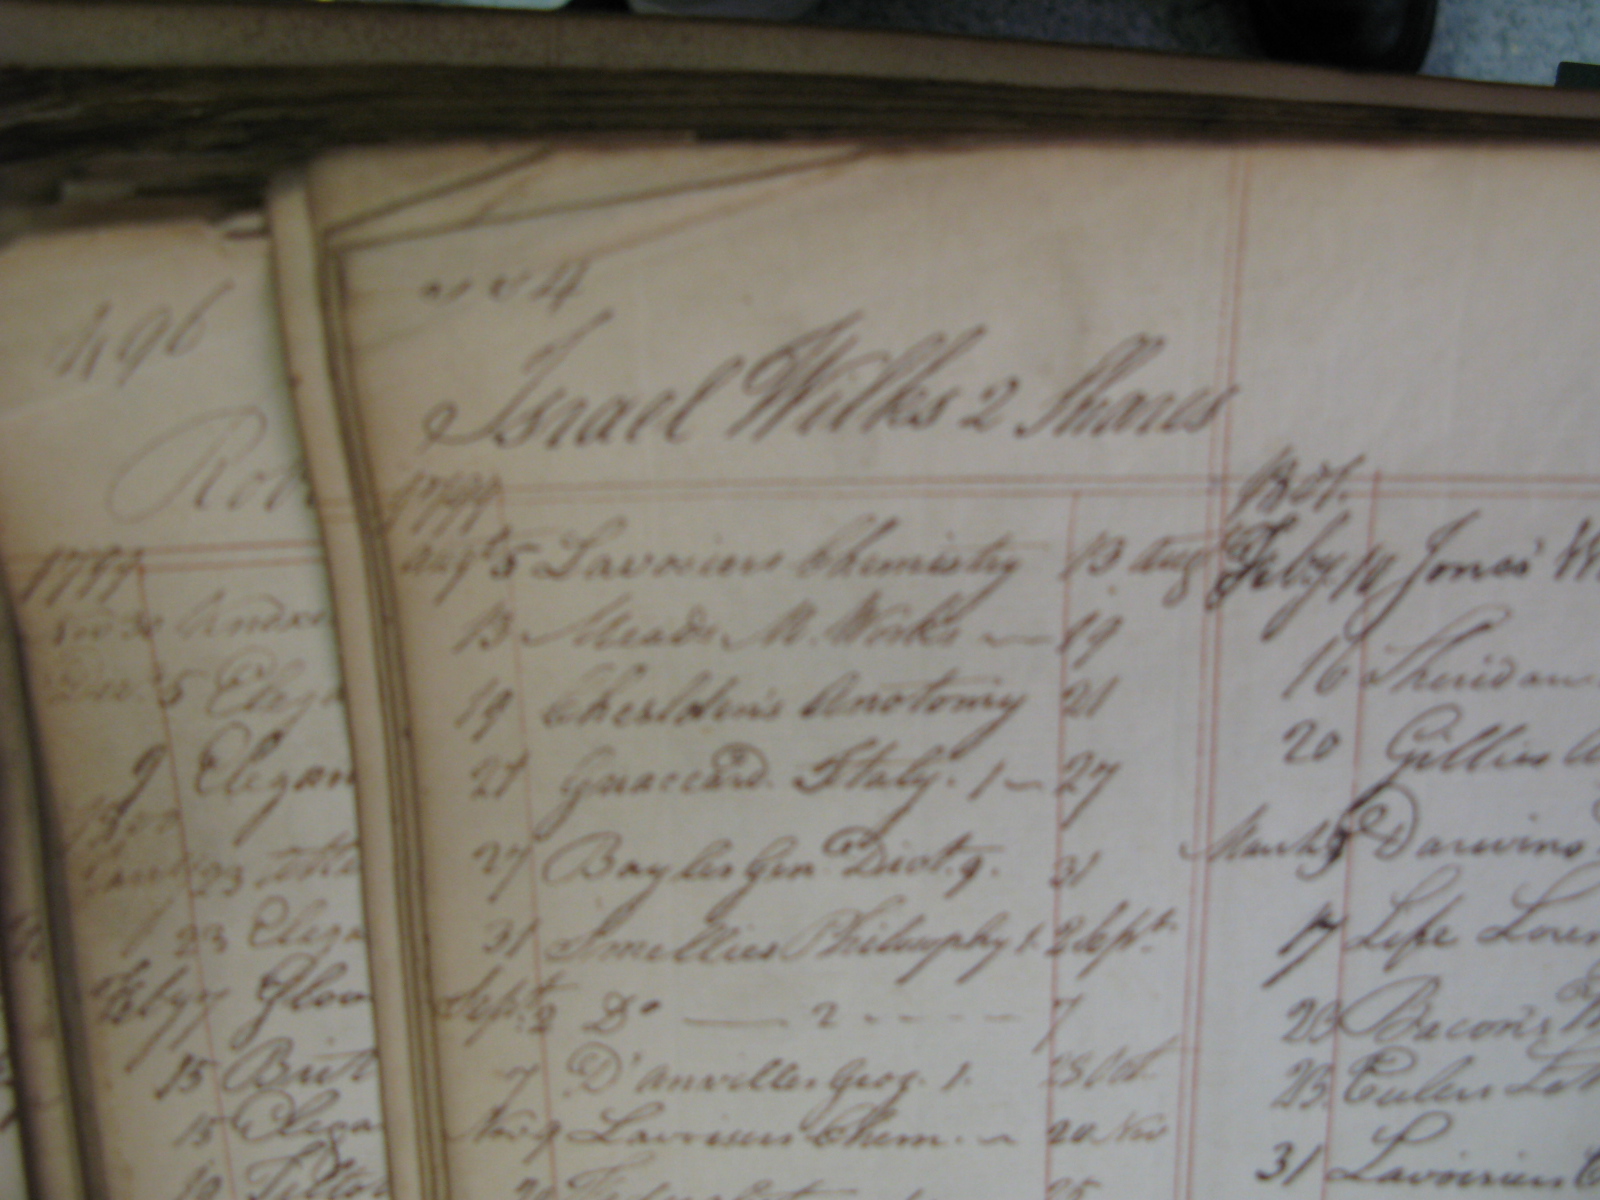 496
Rob
1799
Dec. 5 Elega
9 Elegan
1800
23
23 Elega
Feby 7 Gloo
15 Brit
15 Elega
19 Tilto
Israel Wilks 2 Shares
1799
Augt 5 Lavosiers Chemistry 13 Aug
13 Meads M. Works 19
19 Cheslden's Anotomy 21
21 Italy. 1 27
27 Bayles Gen Dict. 9. 31
31 Smellies Philosophy 1. 2 Sept.
Sept. 2 Do 2 7
7 D'anvilles Geog. 1. 28 Oct.
Nov 9 Lavoisiers Chem. 20 Nov
25
1801.
Feby 14 Jones'
16 Sheridan
20 Gillies
March 3 Darwins
17 Life Loren
23 Bacon's
23. Eulers Let
31 Lavoisiers C